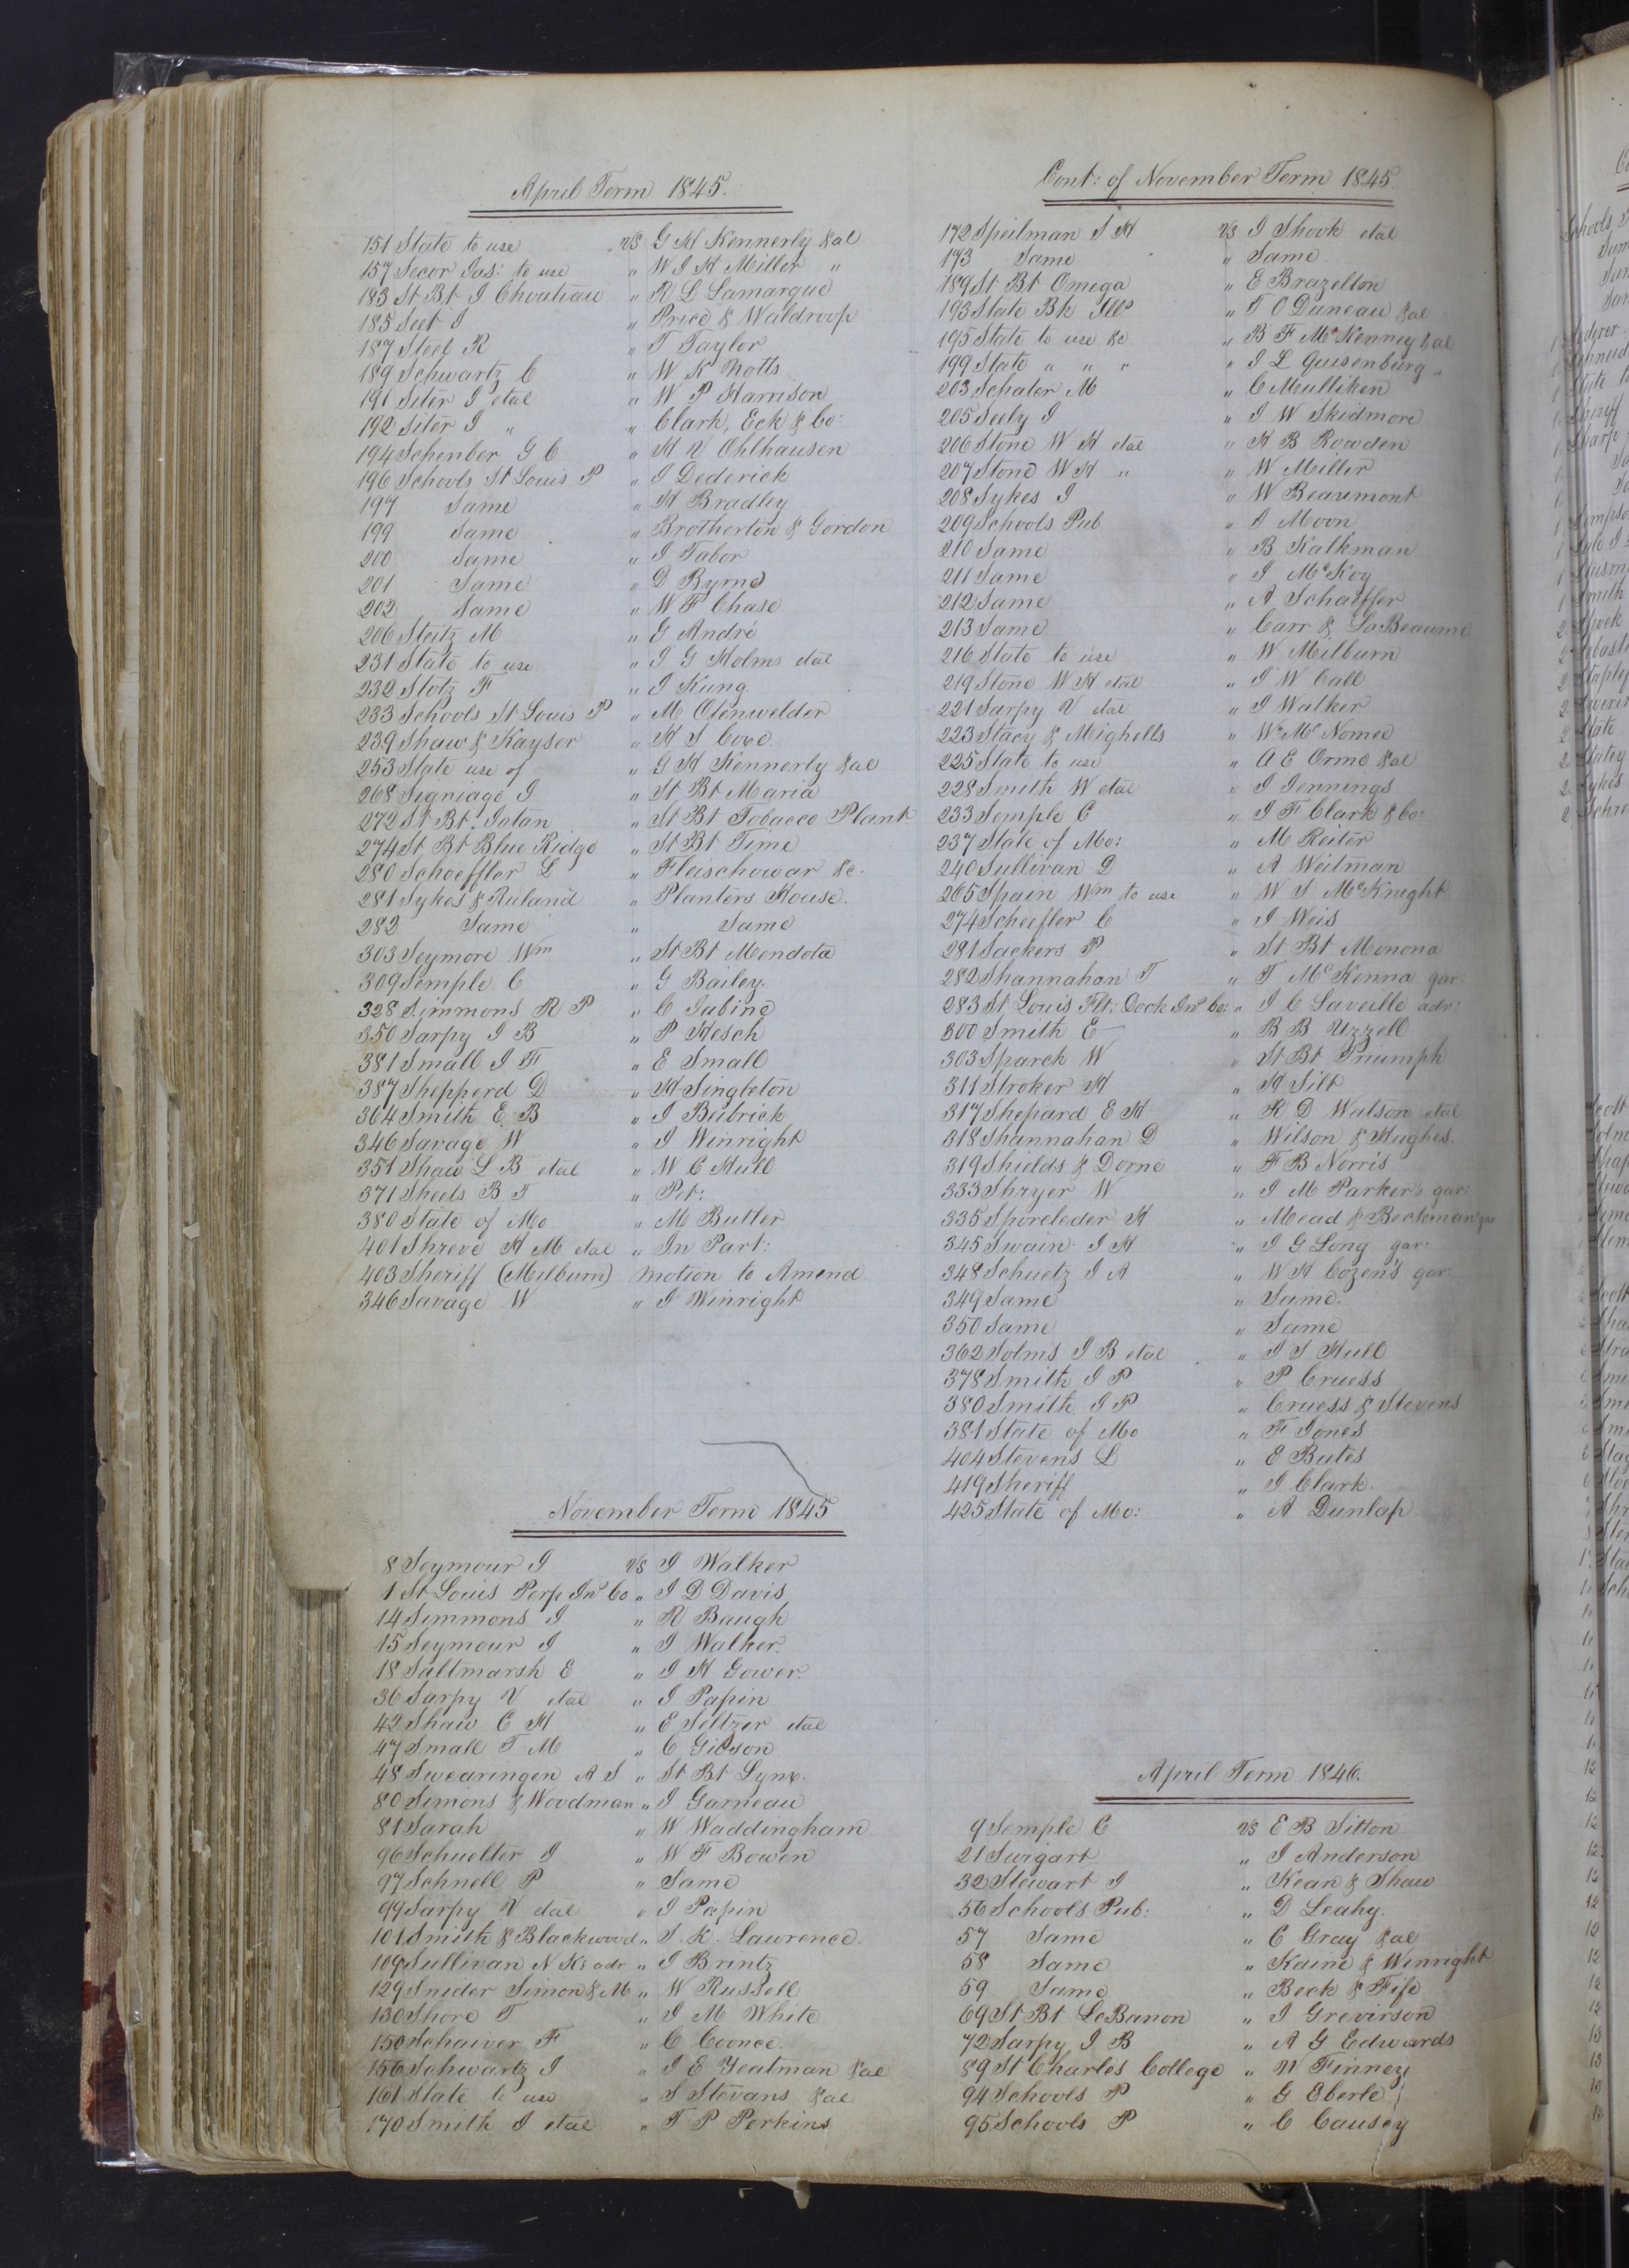 April Term 1845.
151 State to use vs G H Kennerly &al
157 Secor Jas: to use " W I H Miller "
183 St Bt I Chouteau " R L Lamarque
185 Seet I " Price & Waldroop
187 Steel R " T Taylor
189 Schwartz C " W K Notts
191 Siter I etal " W P Harrison
192 Siter I " " Clark, Eck & Co:
194 Schenber G C " H V Ohlhausen
196 Schools St Louis P " I Dederick
197 Same " H Bradley
199 Same " Brotherton & Gordon
200 Same " I Tabor
201 Same " D Byrne
202 Same " W F Chase
206 Steitz M " G André
231 State to use " I G Holms etal
232 Stotz F " I Kung
233 Schools St Louis P " M Otenwelder
239 Shaw & Kayser " H S Coxe
253 State use of " G H Kennerly &al
268 Signiago I " St Bt Maria
272 St Bt Iatan " St Bt Tobacco Plant
274 St Bt Blue Ridge " St Bt Time
280 Schoeffler L " Fleischowar &c.
281 Sykes & Ruland " Planters House.
282 Same " Same
303 Seymore Wm " St Bt Mendota
309 Semple C " G Bailey.
328 Simmons R P " C Jabine
350 Sarpy I B " P Hesch
381 Small I F " E Small
387 Shepperd D " H Singleton
364 Smith E B " I Beibrick
346 Savage W " I Winright
351 Shaw L B etal " W C Hull
371 Sheets B T " Pet:
380 State of Mo " M Butler
401 Shreve H M etal " In Part:
403 Sheriff (Milburn) Motion to Amend
346 Savage W " I Winright
November Term 1845
8 Seymour I vs I Walker
1 St Louis Perp Ins Co " I D Davis
14 Simmons I " R Baugh
15 Seymour I " I Walker.
18 Saltmarsh E " I H Gower.
36 Sarpy V etal " I Papin
42 Shaw C H " E Seltzer etal
47 Small T M " C Gibson
48 Swearingen A S " St Bt Lynx.
80 Simons & Woodman " I Garneau
81 Sarah " W Waddingham
96 Schuelter I " W F Bowen
97 Schnell P " Same
99 Sarpy V etal " I Papin
101 Smith & Blackwood " S. K. Lawrence.
109 Sullivan N Ks adr " I Brintz
129 Snider Simon & M " W Russell
130 Shore T " I M White
150 Schawer F " C Coonce.
156 Schwartz I " I E Yeatman &al
161 State to use " S Stevans &al
170 Smith I etal " T P Perkins
Cont: of November Term 1845
172 Speilman S H vs I Shook etal
173 Same " Same
189 St Bt Omega " E Brazelton
193 State Bk Ills " T O Duncan &al
195 State to use &c " B F McKenney &al
199 State " " " " I L Quisenburg "
203 Schaler M " C Mulliken
205 Seely I " I W Skidmore
206 Stone W H etal " H B Rowden
207 Stone W H " " W Miller
208 Sykes I " W Beaumont
209 Schools Pub " A Moon
210 Same " B Kalkman
211 Same " I McKoy
212 Same " A Schaeffer
213 Same " Carr & LaBeaume
216 State to use " W Milburn
219 Stone W H etal " I W Call
221 Sarpy V etal " I Walker
223 Stacy & Mighells " Wm McNomee
225 State to use " A E Orme &al
228 Smith W etal " I Jennings
233 Semple C " I F Clark & Co:
237 State of Mo: " M Reiter
240 Sullivan D " A Weitman
265 Spain Wm to use " W S McKnight
274 Scheefler C " I Weis
281 Sackers P " St Bt Monona
282 Shannahan T " T McKenna gar:
283 St Louis Flt: Dock Ins Co: " I C Laveille adr:
300 Smith E " B B Uzzell
303 Sparck W " St Bt Triumph
311 Stroker H " H Silt
317 Shepard E H " R D Watson etal
318 Shannahan D " Wilson & Hughes.
319 Shields & Dorne " F B Norris
333 Shryer W " I M Parker's gar:
335 Sporeleder H " Mead & Beckman gar
345 Swain I H " I G Long gar:
348 Schuetz I A " W H Cozen's gar:
349 Same " Same.
350 Same " Same
362 Solms I B etal " I S Hull
378 Smith I P " P Cruess
380 Smith I P " Cruess & Stevens
381 State of Mo " F Jones
404 Stevens L " E Bates
419 Sheriff " I Clark.
425 State of Mo: " A Dunlap
April Term 1846.
9 Semple C vs E B Sitton
21 Swigart " I Anderson
32 Stewart I " Kean & Shaw
56 Schools Pub: " D Leahy.
57 Same " C Gray &al
58 Same " Kaine & Winright
59 Same " Beck & Fife
69 St Bt LeBanon " I Grevirson
72 Sarpy I B " A G Edwards
89 St Charles College " W Finney
94 Schools P " G Eberle
95 Schools P " C Causey